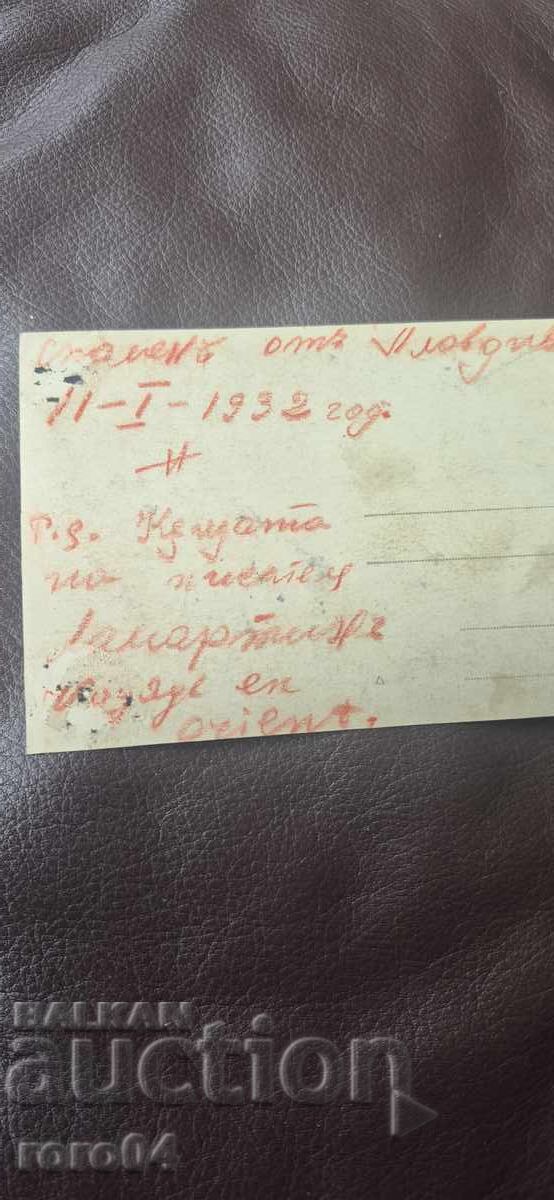 Споменъ отъ Пловдив
11-I-1932 год.
P.S. Къщата
на писателя
Ламартинъ
Voyage en
orient.
BALKAN
auction
roro04